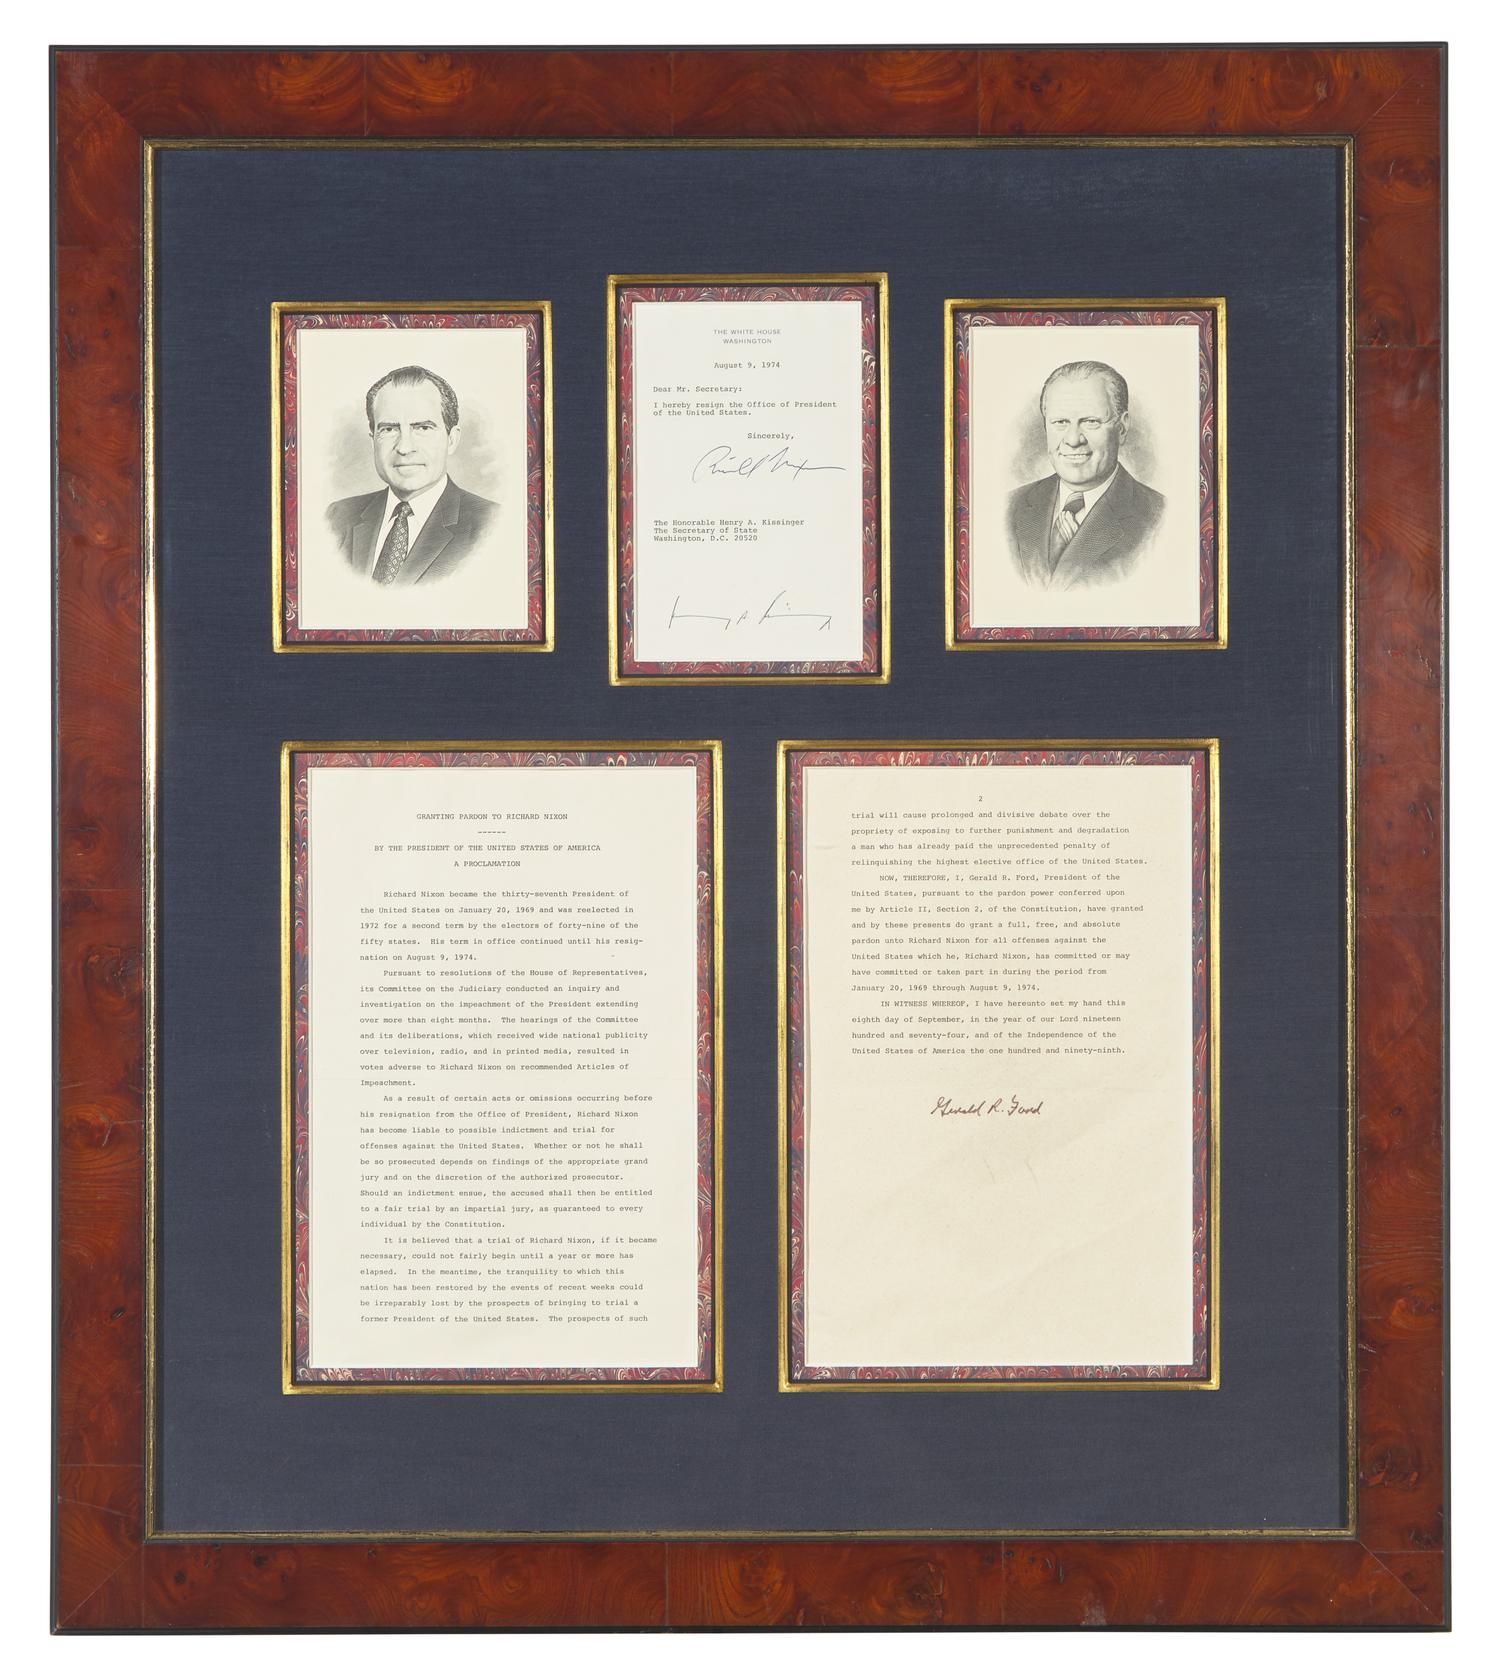 THE WHITE HOUSE
WASHINGTON
August 9, 1974
Dear Mr. Secretary:
I hereby resign the Office of President
of the United States.
Sincerely,
Richard Nixon
The Honorable Henry A. Kissinger
The Secretary of State
Washington, D.C. 20520
Henry A. Kissinger
GRANTING PARDON TO RICHARD NIXON
------
BY THE PRESIDENT OF THE UNITED STATES OF AMERICA
A PROCLAMATION
Richard Nixon became the thirty-seventh President of
the United States on January 20, 1969 and was reelected in
1972 for a second term by the electors of forty-nine of the
fifty states.  His term in office continued until his resig-
nation on August 9, 1974.
Pursuant to resolutions of the House of Representatives,
its Committee on the Judiciary conducted an inquiry and
investigation on the impeachment of the President extending
over more than eight months.  The hearings of the Committee
and its deliberations, which received wide national publicity
over television, radio, and in printed media, resulted in
votes adverse to Richard Nixon on recommended Articles of
Impeachment.
As a result of certain acts or omissions occurring before
his resignation from the Office of President, Richard Nixon
has become liable to possible indictment and trial for
offenses against the United States.  Whether or not he shall
be so prosecuted depends on findings of the appropriate grand
jury and on the discretion of the authorized prosecutor.
Should an indictment ensue, the accused shall then be entitled
to a fair trial by an impartial jury, as guaranteed to every
individual by the Constitution.
It is believed that a trial of Richard Nixon, if it became
necessary, could not fairly begin until a year or more has
elapsed.  In the meantime, the tranquility to which this
nation has been restored by the events of recent weeks could
be irreparably lost by the prospects of bringing to trial a
former President of the United States.  The prospects of such
2
trial will cause prolonged and divisive debate over the
propriety of exposing to further punishment and degradation
a man who has already paid the unprecedented penalty of
relinquishing the highest elective office of the United States.
NOW, THEREFORE, I, Gerald R. Ford, President of the
United States, pursuant to the pardon power conferred upon
me by Article II, Section 2, of the Constitution, have granted
and by these presents do grant a full, free, and absolute
pardon unto Richard Nixon for all offenses against the
United States which he, Richard Nixon, has committed or may
have committed or taken part in during the period from
January 20, 1969 through August 9, 1974.
IN WITNESS WHEREOF, I have hereunto set my hand this
eighth day of September, in the year of our Lord nineteen
hundred and seventy-four, and of the Independence of the
United States of America the one hundred and ninety-ninth.
Gerald R. Ford